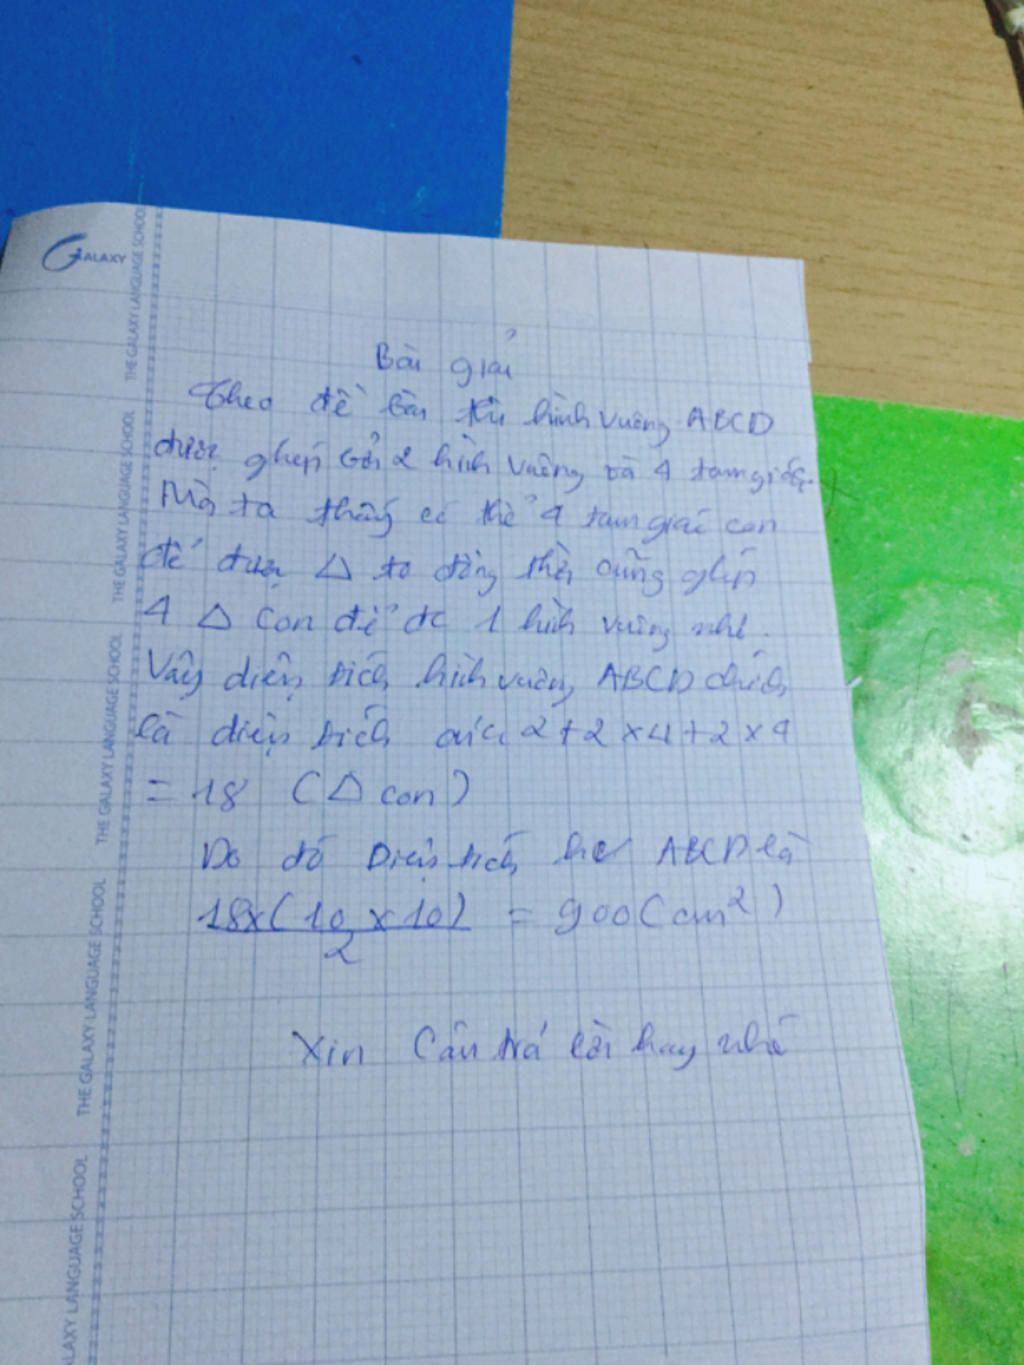 GALAXY
THE GALAXY LANGUAGE SCHOOL
THE GALAXY LANGUAGE SCHOOL
THE GALAXY LANGUAGE SCHOOL
THE GALAXY LANGUAGE SCHOOL
THE GALAXY LANGUAGE SCHOOL
GALAXY LANGUAGE SCHOOL
Bài giải
Theo đề bài thì hình vuông ABCD
được ghép bởi 2 hình vuông và 4 tam giác.
Mà ta thấy có thể 4 tam giác con
để được Δ to đồng thời cũng ghép
4 Δ con để đc 1 hình vuông nhỏ.
Vậy diện tích hình vuông ABCD chính
là diện tích của 2 + 2 × 4 + 2 × 4
= 18 (Δ con)
Do đó Diện tích ABCD là
18×(10 × 10) = 900 (cm²)
2
Xin Câu trả lời hay nhé